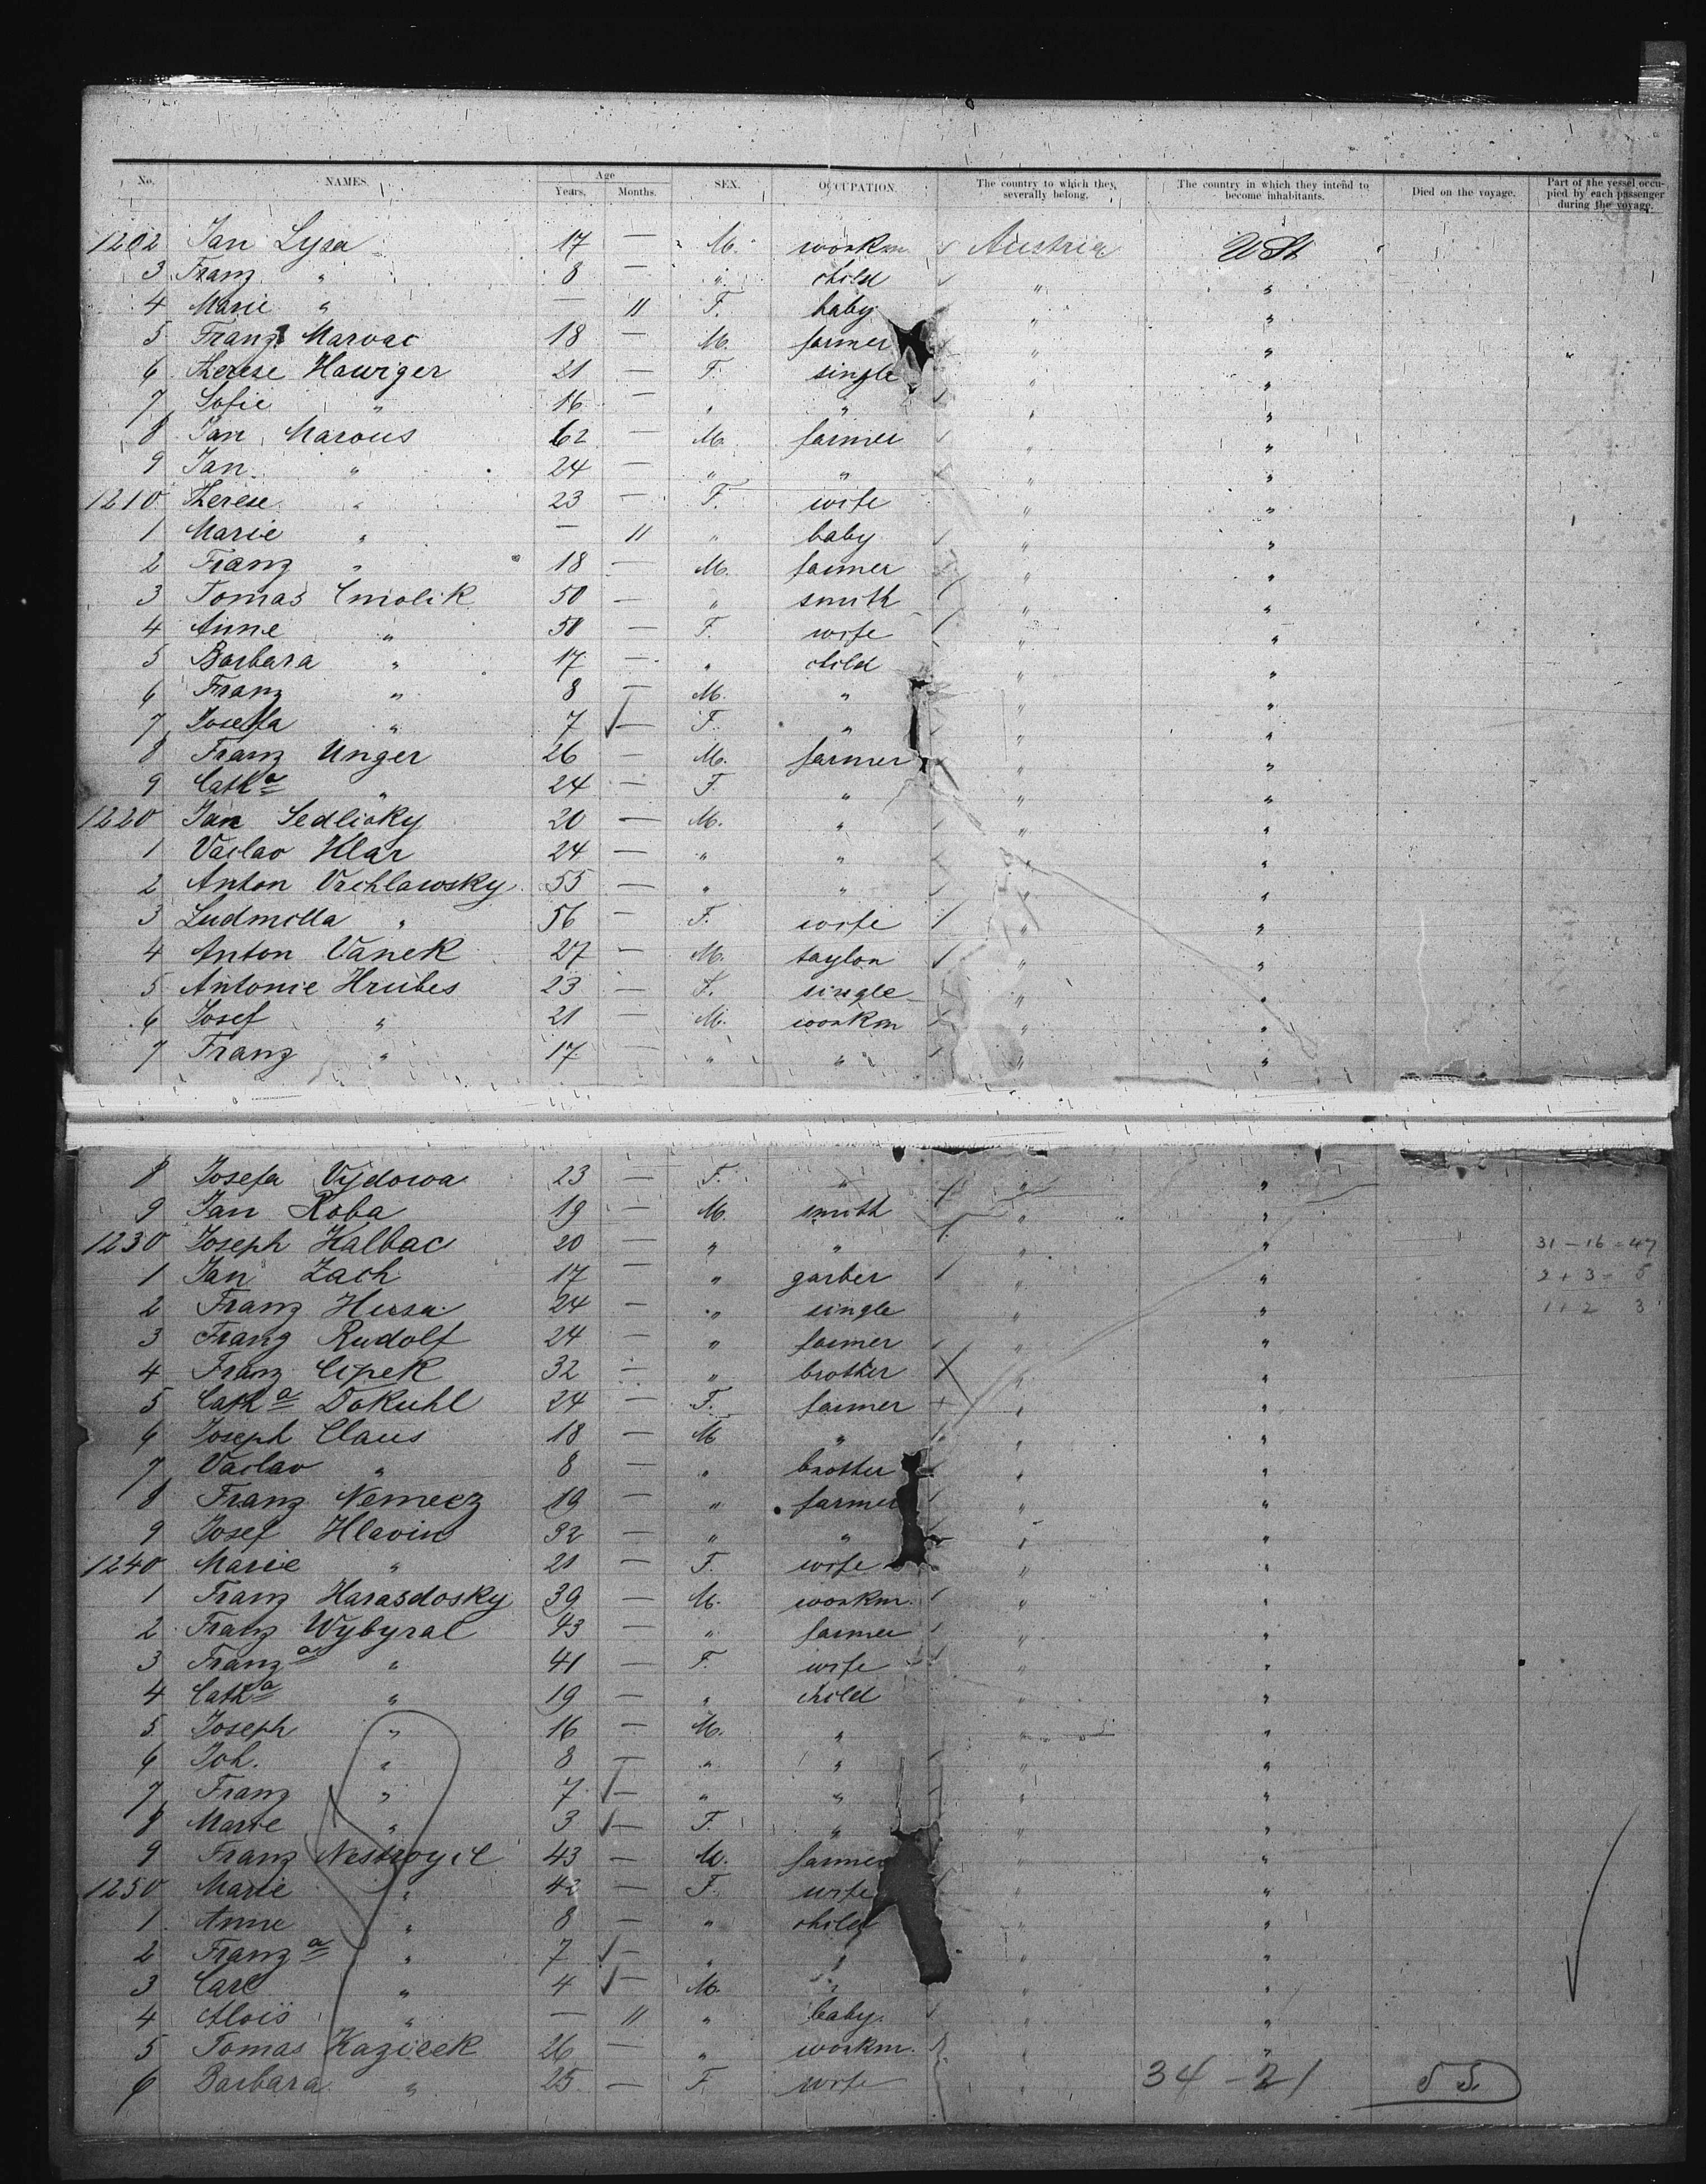 No. NAMES. Age Years, Months. SEX. OCCUPATION. The country to which they severally belong. The country in which they intend to become inhabitants. Died on the voyage. Part of the vessel occupied by each passenger during the voyage.
1202 Jan Lysa 17 — M. workm Austria USt
3 Franz " 8 — " child " "
4 Marie " — 11 F. baby " "
5 Franz Marvac 18 — M. farmer " "
6 Therese Hawiger 21 — F. single " "
7 Sofie " 16 — " " " "
8 Jan Marous 62 — M. farmer " "
9 Jan " 24 — " " " "
1210 Therese " 23 — F. wife " "
1 Marie " — 11 " baby " "
2 Franz " 18 — M. farmer " "
3 Tomas Cmolik 50 — " smith " "
4 Anne " 50 — F. wife " "
5 Barbara " 17 — " child " "
6 Franz " 8 — M. " " "
7 Josefa " 7 — F. " " "
8 Franz Unger 26 — M. farmer " "
9 Catha " 24 — F. " " "
1220 Jan Sedlisky 20 — M. " " "
1 Vaclav Klar 24 — " " " "
2 Anton Vrchlawsky 55 — " " " "
3 Ludmilla " 56 — F. wife " "
4 Anton Vanek 27 — M. taylon " "
5 Antonie Hrubes 23 — F. single " "
6 Josef " 21 — M. workm " "
7 Franz " 17 — " " " "
8 Josefa Vydowa 23 — F. " " "
9 Jan Koba 19 — M. smith " "
1230 Joseph Halbac 20 — " " " " 31 - 16 = 47
1 Jan Zach 17 — " garber " " 2 + 3 = 5
2 Franz Husa 24 — " single " " 1 + 2 3
3 Franz Rudolf 24 — " farmer " "
4 Franz Cipek 32 — " brother " "
5 Catha Dokuhl 24 — F. farmer " "
6 Joseph Claus 18 — M " " "
7 Vaclav " 8 — " brother " "
8 Franz Nemecz 19 — " farmer " "
9 Josef Hlavin 32 — " " " "
1240 Marie " 21 — F. wife " "
1 Franz Harasdosky 39 — M. workm. " "
2 Franz Wybyral 43 — " farmer " "
3 Franza " 41 — F. wife " "
4 Catha " 19 — " child " "
5 Joseph " 16 — M. " " "
6 Joh. " 8 — " " " "
7 Franz " 7 — " " " "
8 Marie " 3 — F. " " "
9 Franz Nestroyil 43 — M. farmer " "
1250 Marie " 42 — F. wife " "
1 Anne " 8 — " child " "
2 Franza " 7 — " " " "
3 Carl " 4 — M. " " "
4 Alois " — 11 " baby. " "
5 Tomas Kazirek 26 — " workm. " "
6 Barbara " 25 — F. wife " 34 - 21 55